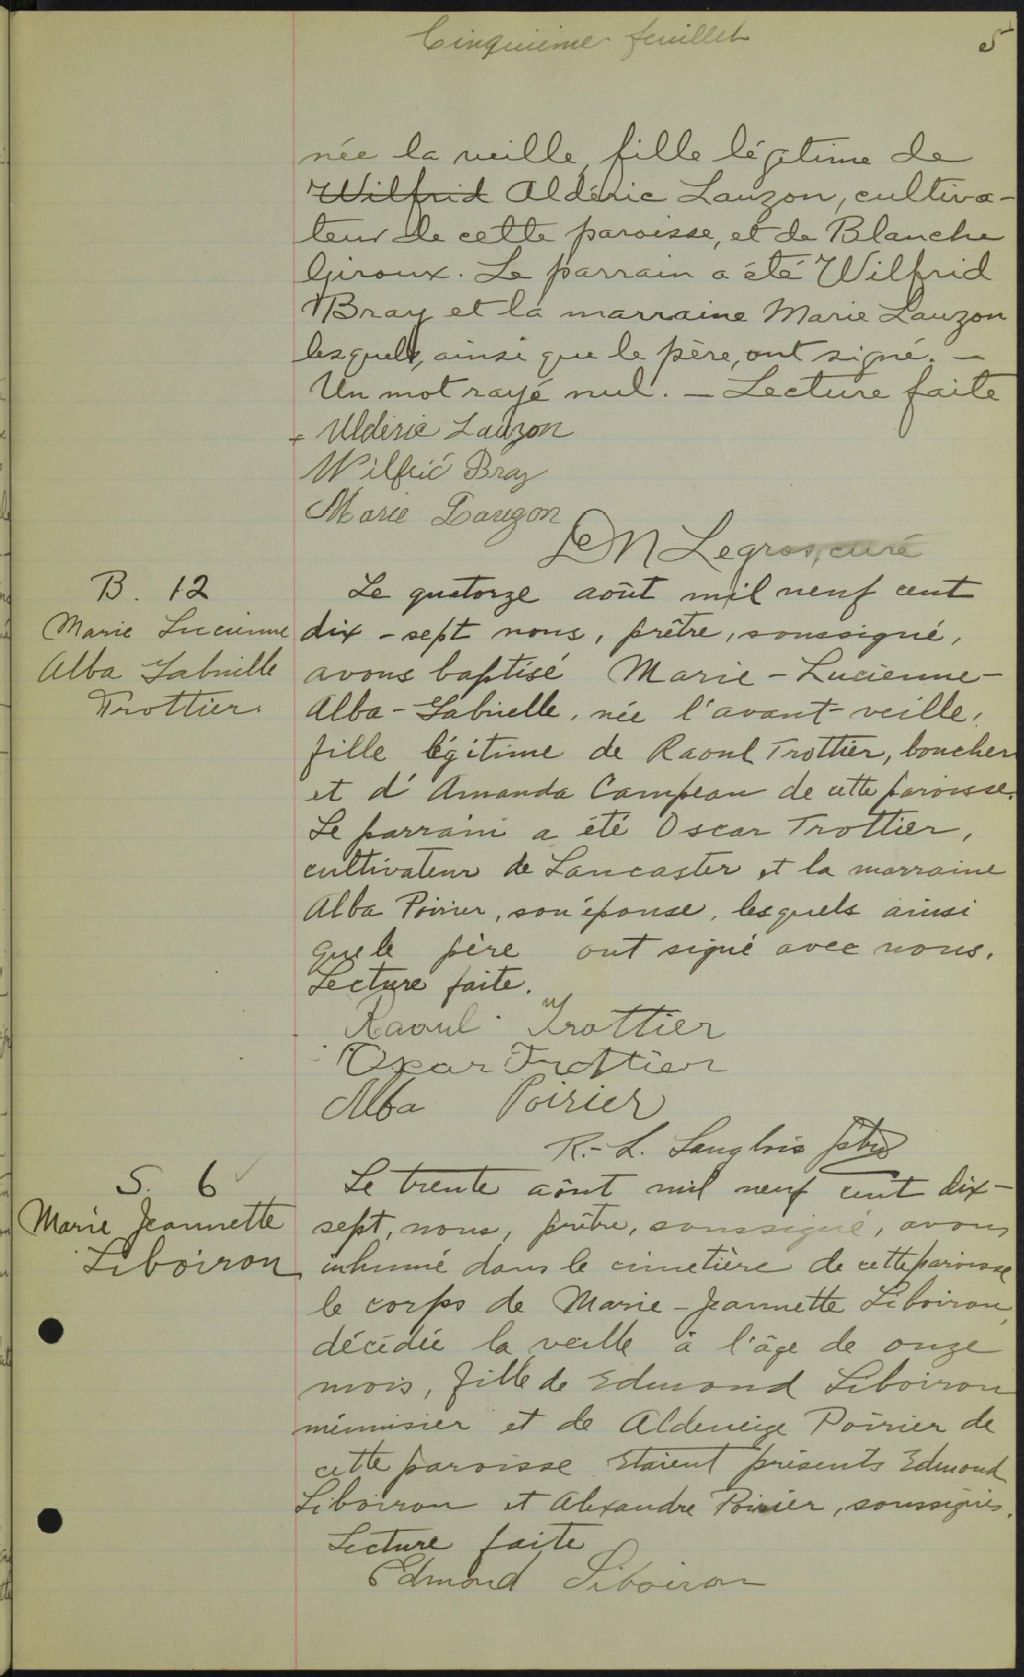 Cinquième feuillet
5
née la veille, fille légitime de
Wilfrid Aldéric Lauzon, cultiva-
teur de cette paroisse, et de Blanche
Giroux. Le parrain a été Wilfrid
Bray et la marraine Marie Lauzon
lesquels, ainsi que le père, ont signé. —
Un mot rayé nul. — Lecture faite
+ Uldéric Lauzon
Wilfrid Bray
Marie Lauzon
Legros, curé
B. 12
Marie Lucienne
Alba Gabrielle
Trottier.
Le quatorze août mil neuf cent
dix-sept nous, prêtre, soussigné,
avons baptisé Marie-Lucienne-
Alba-Gabrielle, née l'avant-veille,
fille légitime de Raoul Trottier, boucher
et d'Amanda Campeau de cette paroisse.
Le parrain a été Oscar Trottier,
cultivateur de Lancaster et la marraine
Alba Poirier, son épouse, lesquels ainsi
que le père ont signé avec nous.
Lecture faite.
Raoul Trottier
Oscar Trottier
Alba Poirier
R.-L. Langlois ptre
S. 6
Marie Jeannette
Liboiron
Le trente août mil neuf cent dix-
sept, nous, prêtre, soussigné, avons
inhumé dans le cimetière de cette paroisse
le corps de Marie-Jeannette Liboiron,
décédée la veille à l'âge de onze
mois, fille de Edmond Liboiron
menuisier et de Aldeneige Poirier de
cette paroisse Etaient présents Edmond
Liboiron et Alexandre Poirier, soussignés.
Lecture faite
Edmond Liboiron